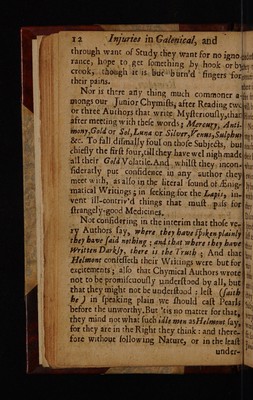 12 Injuries in Galenical, and
through want of Study they want for no igno-
rance, hope to get something by hook or by
crook, though it is but burn'd fingers for
their pains.
Nor is there any thing much commoner a-
mongs our Junior Chymists, after Reading two
or three Authors that write Mysteriously, that
after meeting with these words; Mercury, Anti-
mony, Gold or Sol, Luna or Silver, Venus, Sulphur
&c. To fall dismally foul on those Subjects, but
chiefly the first four, till they have wel nigh made
all their Gold Volatile. And whilst they, incon-
siderately put confidence in any author they
meet with, as also in the literal sound of Ænig-
matical Writings; in seeking for the Lapis, in-
vent ill-contriv'd things that must pass for
strangely-good Medicines.
Not considering in the interim that those ve-
ry Authors say, where they have spiken plainly
they have said nothing; and that where they have
Written Darkly, there is the Truth; And that
Helmont confesseth their Writings were but for
excitements; also that Chymical Authors wrote
not to be promiscuously understood by all, but
that they might not be understood: lest (saith
he) in speaking plain we should cast Pearls
before the unworthy. But 'tis no matter for that,
they mind not what such idle men as Helmont say,
for they are in the Right they think: and there-
fore without following Nature, or in the least
under-